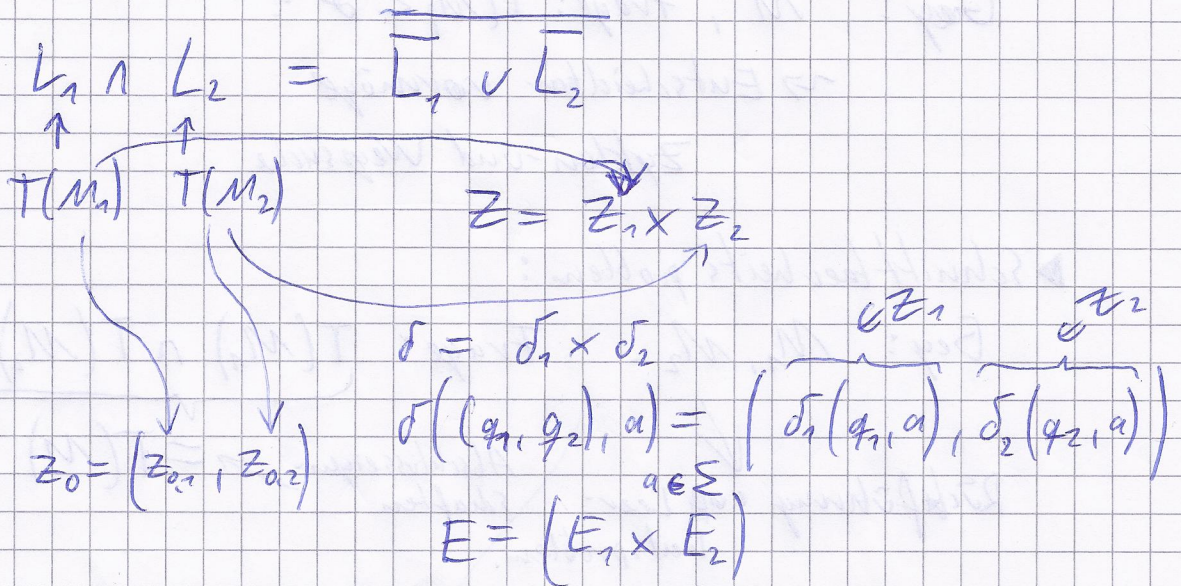 L₁ ∩ L₂ = \overline{\overline{L₁} ∪ \overline{L₂}}
↑ ↑
T(M₁) T(M₂)
Z = Z₁ × Z₂
∈Z₁ ∈Z₂
δ = δ₁ × δ₂
δ((q₁, q₂), a) = (δ₁(q₁, a), δ₂(q₂, a))
a ∈ Σ
z₀ = (z₀,₁ , z₀,₂)
E = (E₁ × E₂)